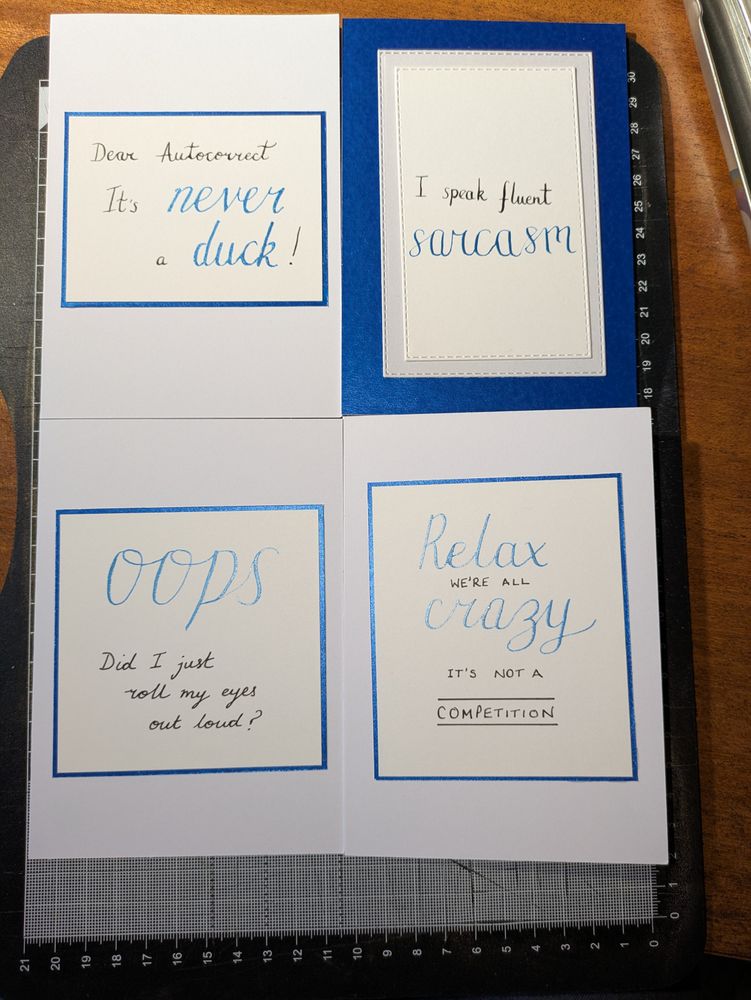 Dear Autocorrect
It's never
a duck!
I speak fluent
sarcasm
oops
Did I just
roll my eyes
out loud?
Relax
WE'RE ALL
crazy
IT'S NOT A
COMPETITION
30
29
28
27
26
25
24
23
22
21
20
19
18
2
1
0
21
20
19
18
17
16
15
14
13
12
11
10
9
8
7
6
5
4
3
2
1
0